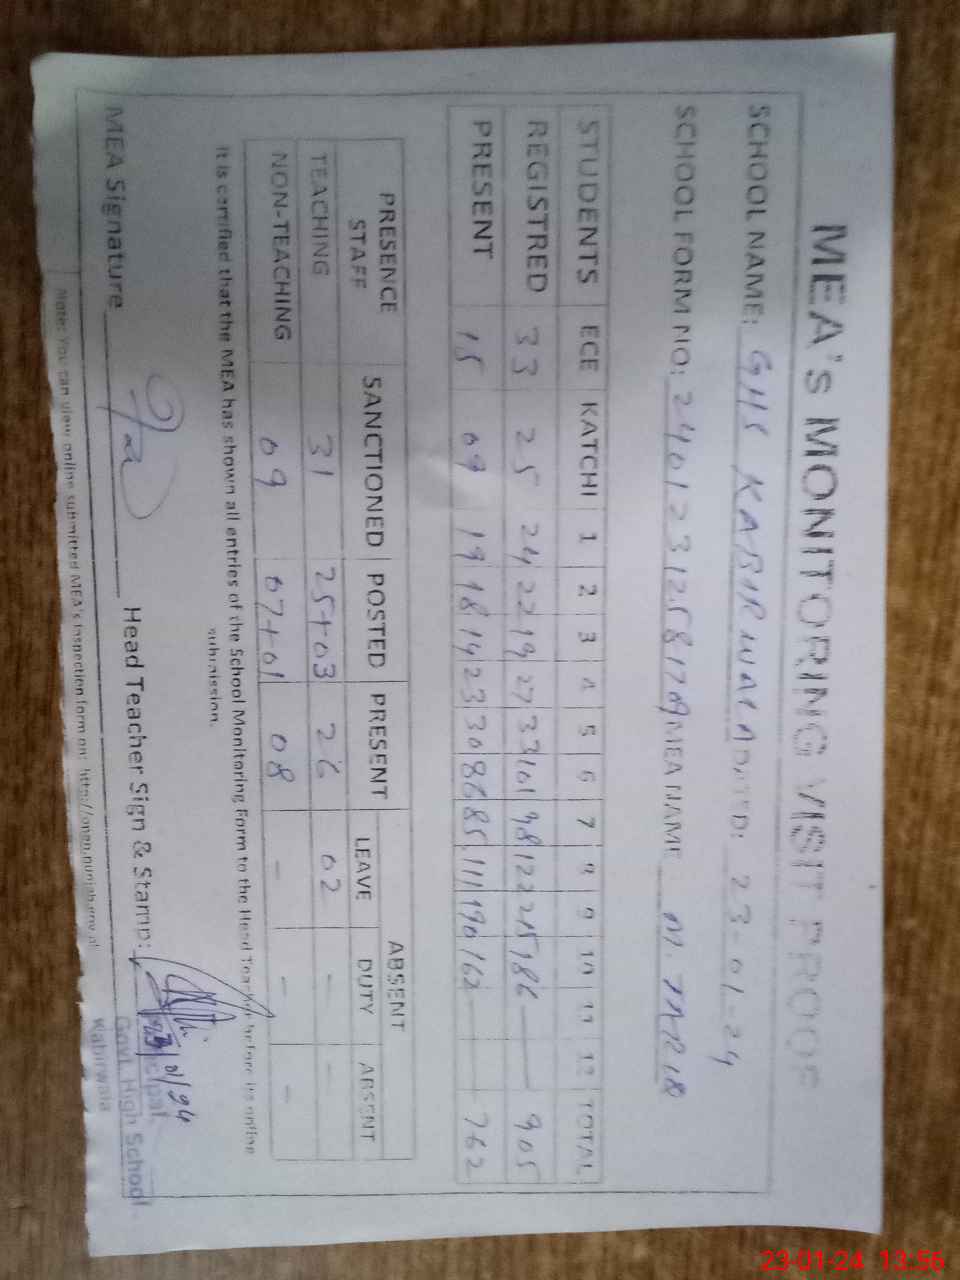 MEA's MONITORING VISIT PROOF
SCHOOL NAME: GHS KABIRWALA DATED: 23-01-24
SCHOOL FORM NO: 24012312581709 MEA NAME M.
STUDENTS ECE KATCHI 1 2 3 4 5 6 7 8 9 10 11 12 TOTAL
REGISTRED 33 25 24 22 19 27 33 101 98 122 215 186 — — 905
PRESENT 15 09 19 18 14 23 30 86 85 111 190 162 — — 762
PRESENCE STAFF SANCTIONED POSTED PRESENT ABSENT
LEAVE DUTY ABSENT
TEACHING 31 25+03 26 02 - -
NON-TEACHING 09 07+01 08 - - -
It is certified that the MEA has shown all entries of the School Monitoring Form to the Head Teacher before its online
submission.
MEA Signature Head Teacher Sign & Stamp:
23/01/24
Principal
Govt. High School
Kabirwala
Note: You can view online submitted MEA's inspection form on: http://open.punjab.gov.pk
23-01-24 13:56